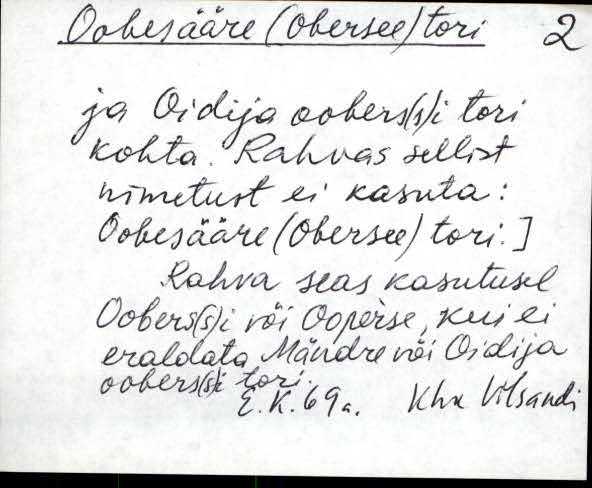 Oobesääre (Obersee) tori 2
ja Oidija oobers(s)i tori
kohta. Rahvas sellist
nimetust ei kasuta:
Oobesääre (Obersee) tori.]
Rahva seas kasutusel
Oobers(s)i või Ooperse, kui ei
eraldata Mändre või Oidija
oobers(s)i tori.
E. K. 69 a. Khk Vilsandi